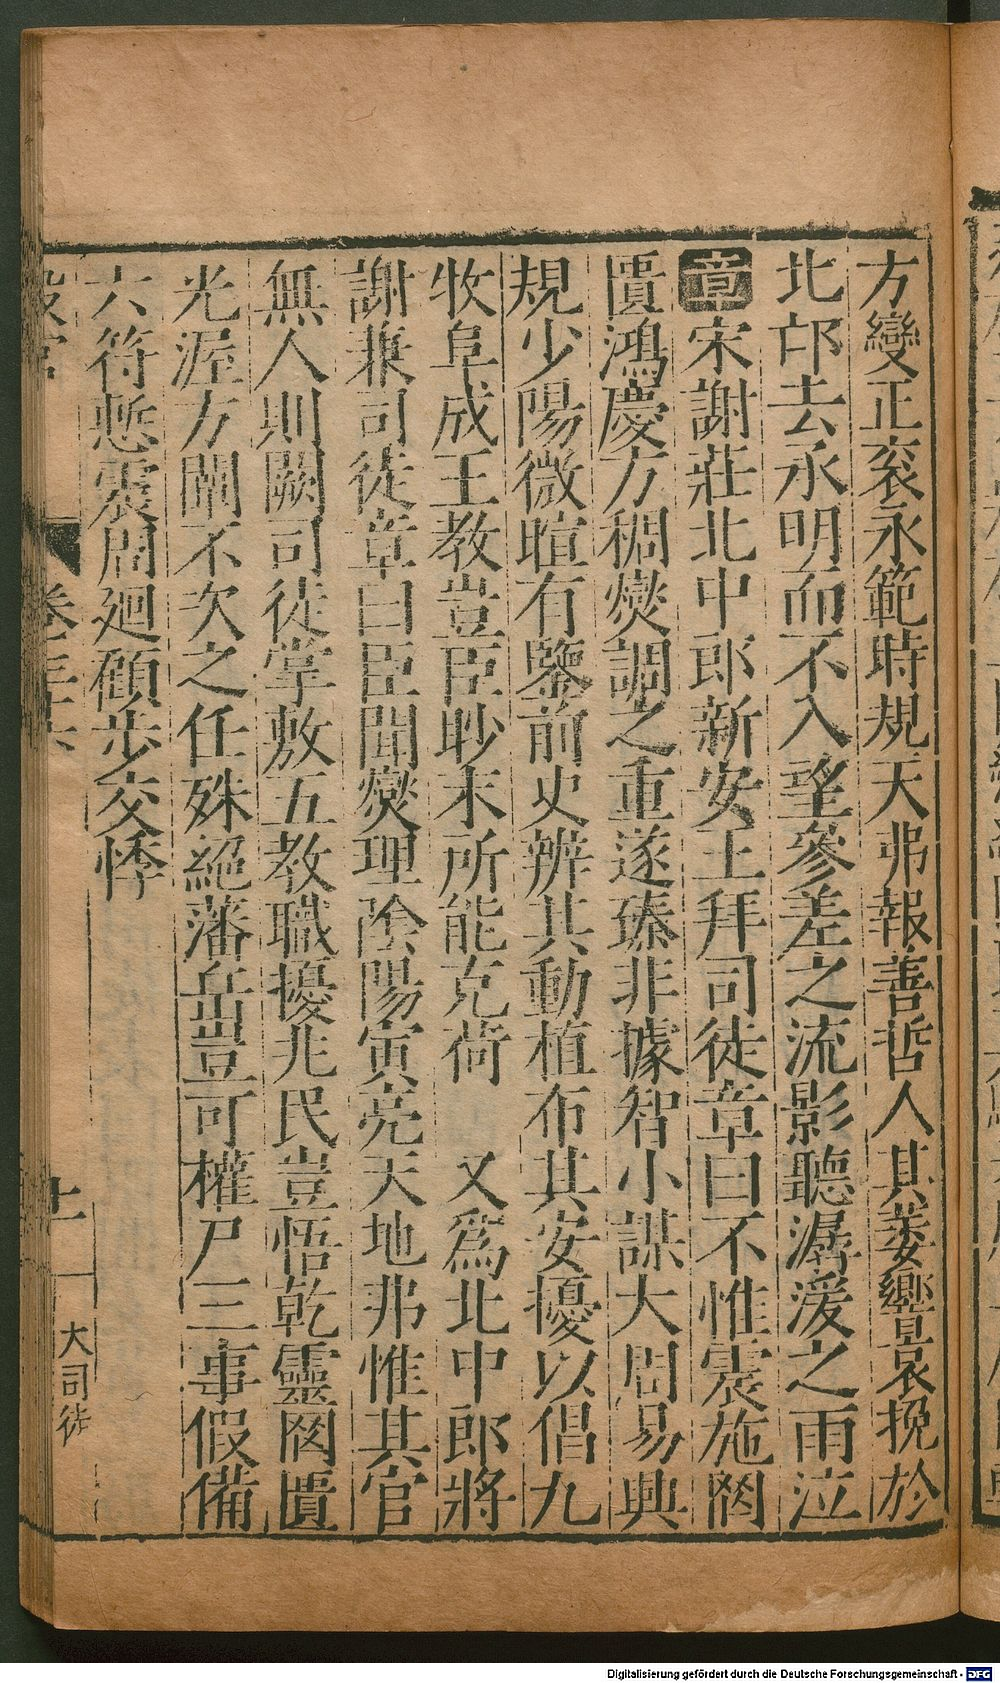 方變正衮永範時規天弗報善哲人其萎纓哀挽於
北邙去永明而不入望參差之流影聽潺湲之雨泣
章宋謝莊北中郎新安王拜司徒章曰不惟震施罔
匱鴻慶方稠爕調之重遂臻非據智小謀大周易興
規少陽微暄有鑒前史辨其動植布其安擾以倡九
牧阜成王教豈臣眇末所能克荷 又爲北中郎將
謝兼司徒章曰臣聞爕理陰陽寅亮天地弗惟其官
無人則闕司徒掌敷五教職擾兆民豈悟乾靈罔匱
光渥方闡不次之任殊絕藩岳豈可權尸三事假備
六符慙震周廻顧步交悸
設官
卷三十六
十一
大司徒
Digitalisierung gefördert durch die Deutsche Forschungsgemeinschaft - DFG